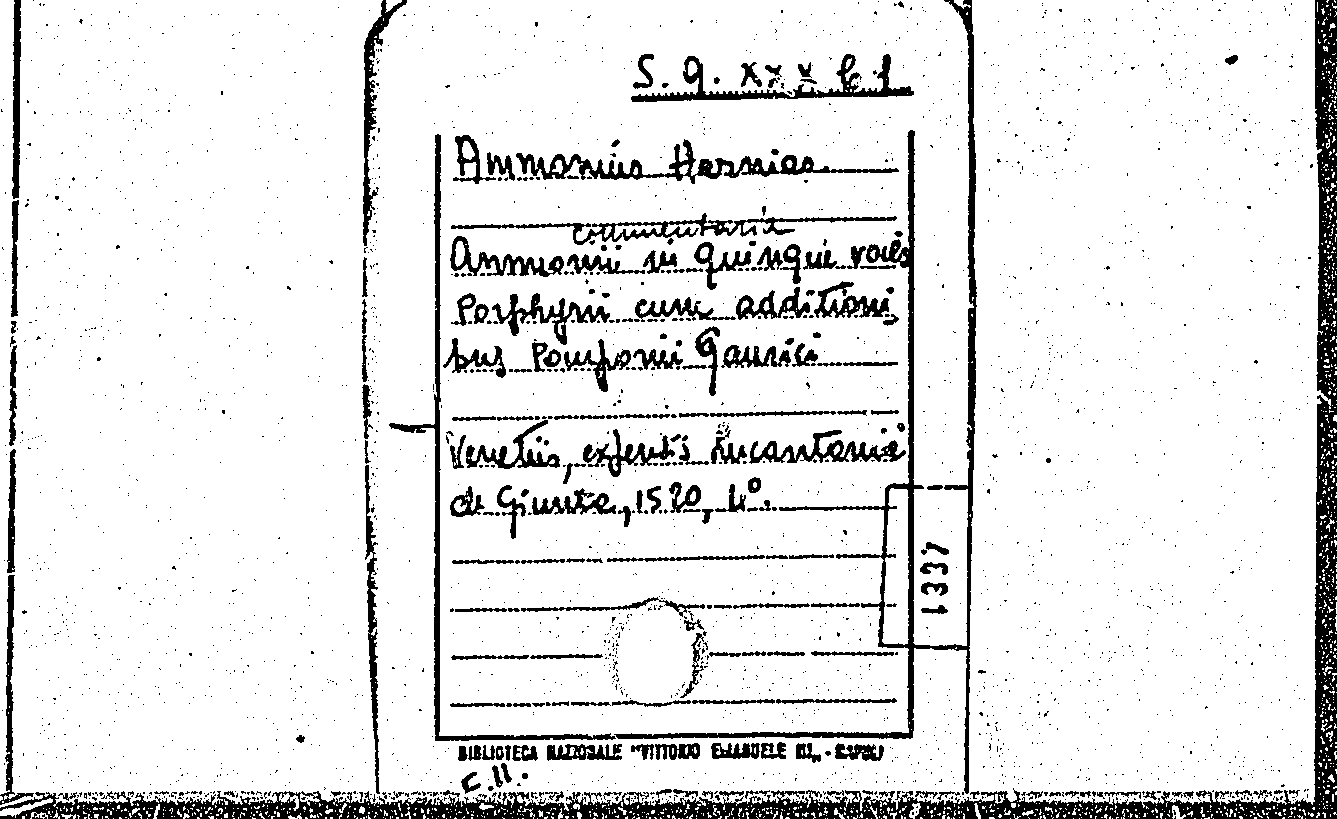 S. Q. XXX C 1
Ammonius Hermias.
commentaria
Ammonii in quinque voces
Porphyrii cum additioni
bus Pomponii Gaurici
Venetiis, expensis Lucantonii
de Giunta, 1520, 4°.
1337
BIBLIOTECA NAZIONALE "VITTORIO EMANUELE III" - NAPOLI